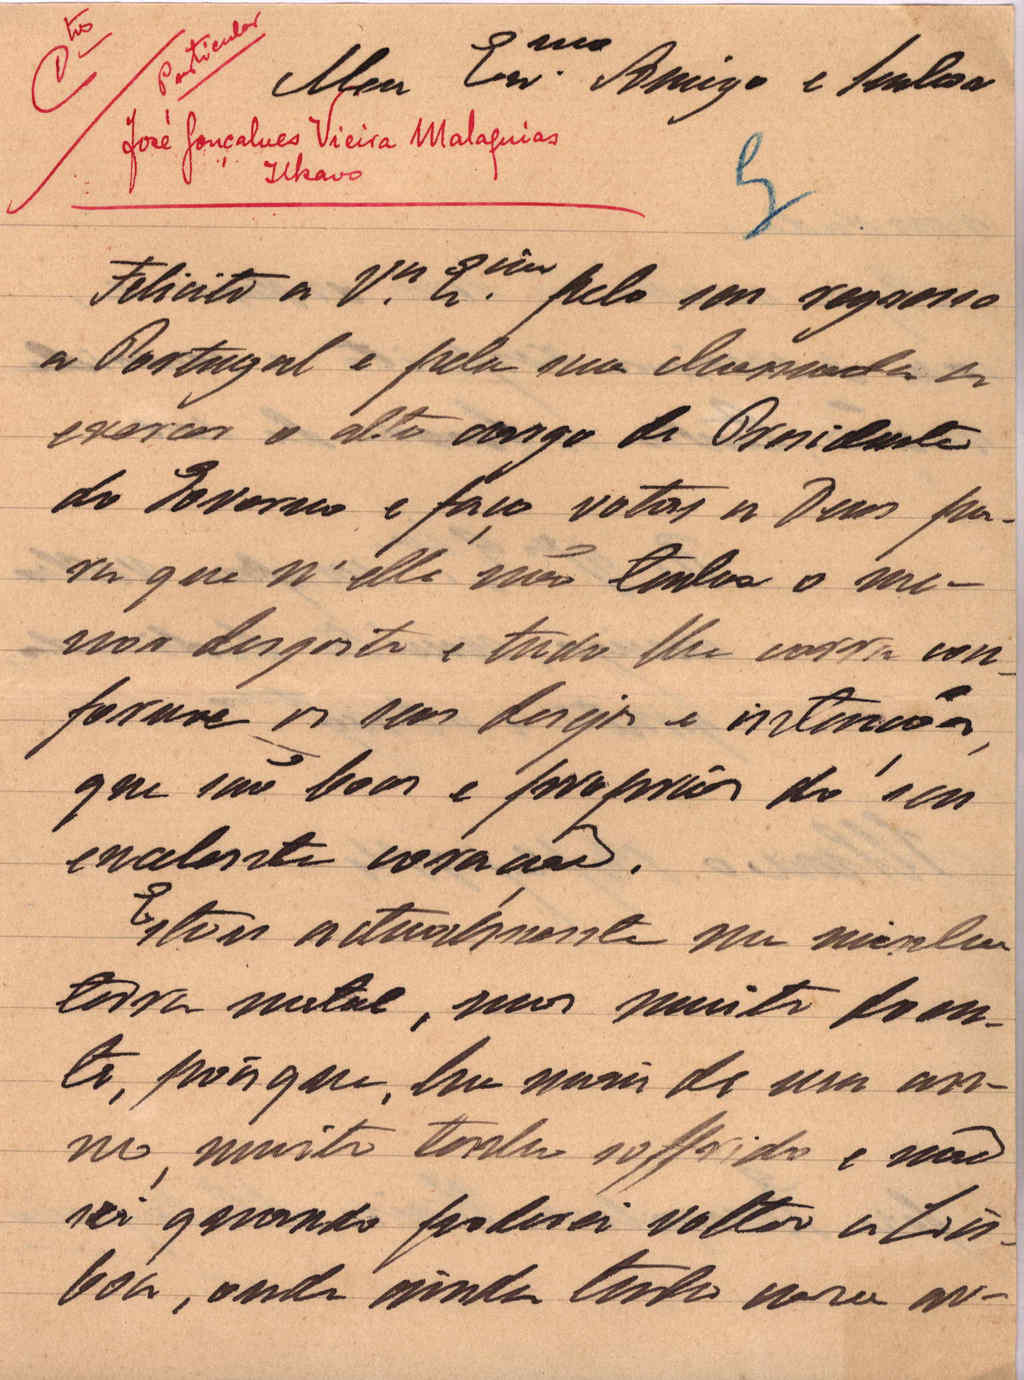 Dtos
Particular
Meu Exmo. Amigo e Senhor
José Gonçalves Vieira Malaquias
Ilhavo
Felicito a Va. Excia pelo seu regresso
a Portugal e pela sua chamada a
exercer o alto cargo de Presidente
do Governo e faço votos a Deus pa-
ra que n'elle não tenha o me-
nor desgosto e tudo lhe corra con-
forme os seus desejos e intenções,
que são boas e proprias do seu
excelente coração.
Estou actualmente na minha
terra natal, mas muito doen-
te, pois que, ha mais de um an-
no, muito tenho soffrido e não
sei quando poderei voltar a Lis-
boa, onde ainda tenho casa ar-